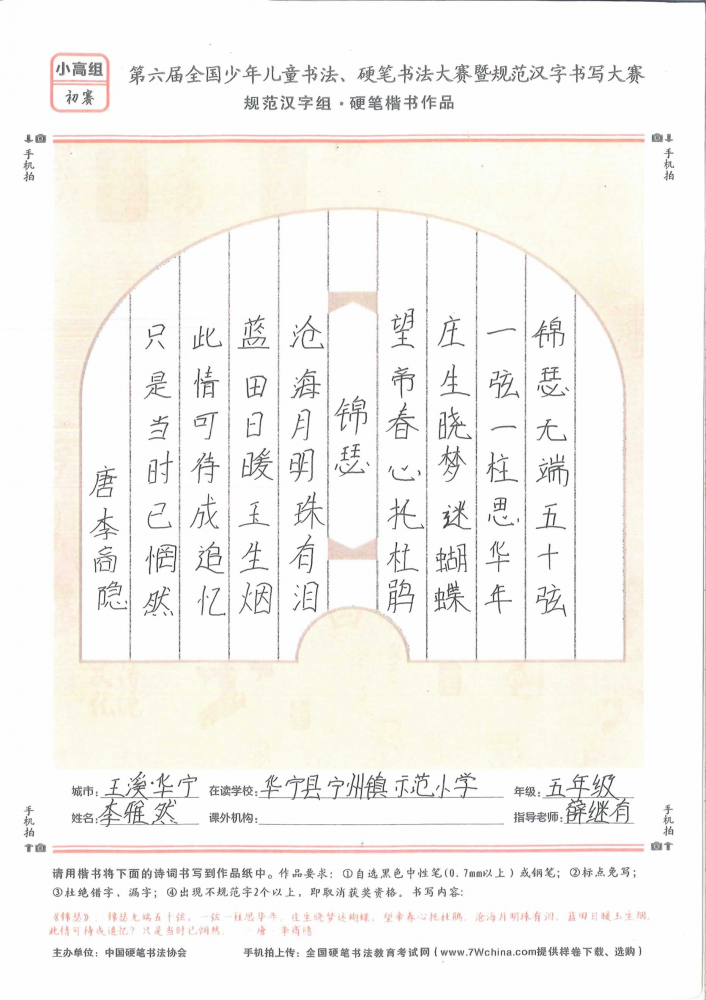 小高组
初赛
第六届全国少年儿童书法、硬笔书法大赛暨规范汉字书写大赛
规范汉字组·硬笔楷书作品
手机拍
手机拍
锦瑟无端五十弦
一弦一柱思华年
庄生晓梦迷蝴蝶
望帝春心托杜鹃
锦瑟
沧海月明珠有泪
蓝田日暖玉生烟
此情可待成追忆
只是当时已惘然
唐李商隐
城市:玉溪·华宁 在读学校:华宁县宁州镇示范小学 年级:五年级
姓名:李雅然 课外机构: 指导老师:薛继有
手机拍
手机拍
请用楷书将下面的诗词书写到作品纸中。作品要求:①自选黑色中性笔(0.7mm以上)或钢笔;②标点免写;
③杜绝错字、漏字;④出现不规范字2个以上,即取消获奖资格。书写内容:
《锦瑟》.锦瑟无端五十弦,一弦一柱思华年。庄生晓梦迷蝴蝶,望帝春心托杜鹃。沧海月明珠有泪,蓝田日暖玉生烟。
此情可待成追忆?只是当时已惘然。 ——唐·李商隐
主办单位:中国硬笔书法协会 手机拍上传:全国硬笔书法教育考试网(www.7Wchina.com提供样卷下载、选购)